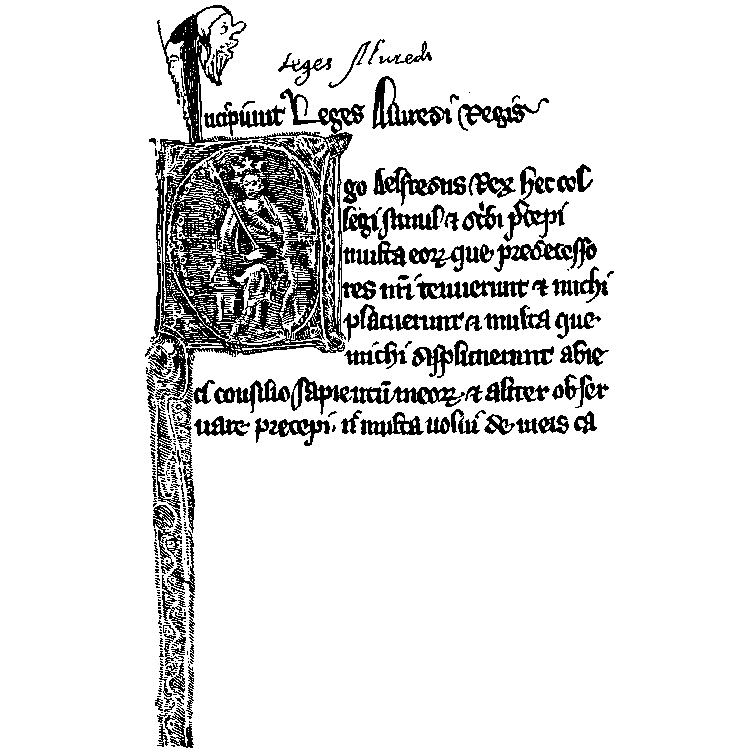 Leges Aluredi
Incipiunt Leges Aluredi Regis
go Aelfredus Rex hec col
legi simul ⁊ sc̾bi p̾cepi
multa eoꝝ que predecesso
res nr̄i tenuerunt ⁊ michi
placuerunt ⁊ multa que
michi displicuerunt abie
ci consilio sapientū meoꝝ ⁊ aliter obser
uare precepi. nˡ multa uolui de meis ca